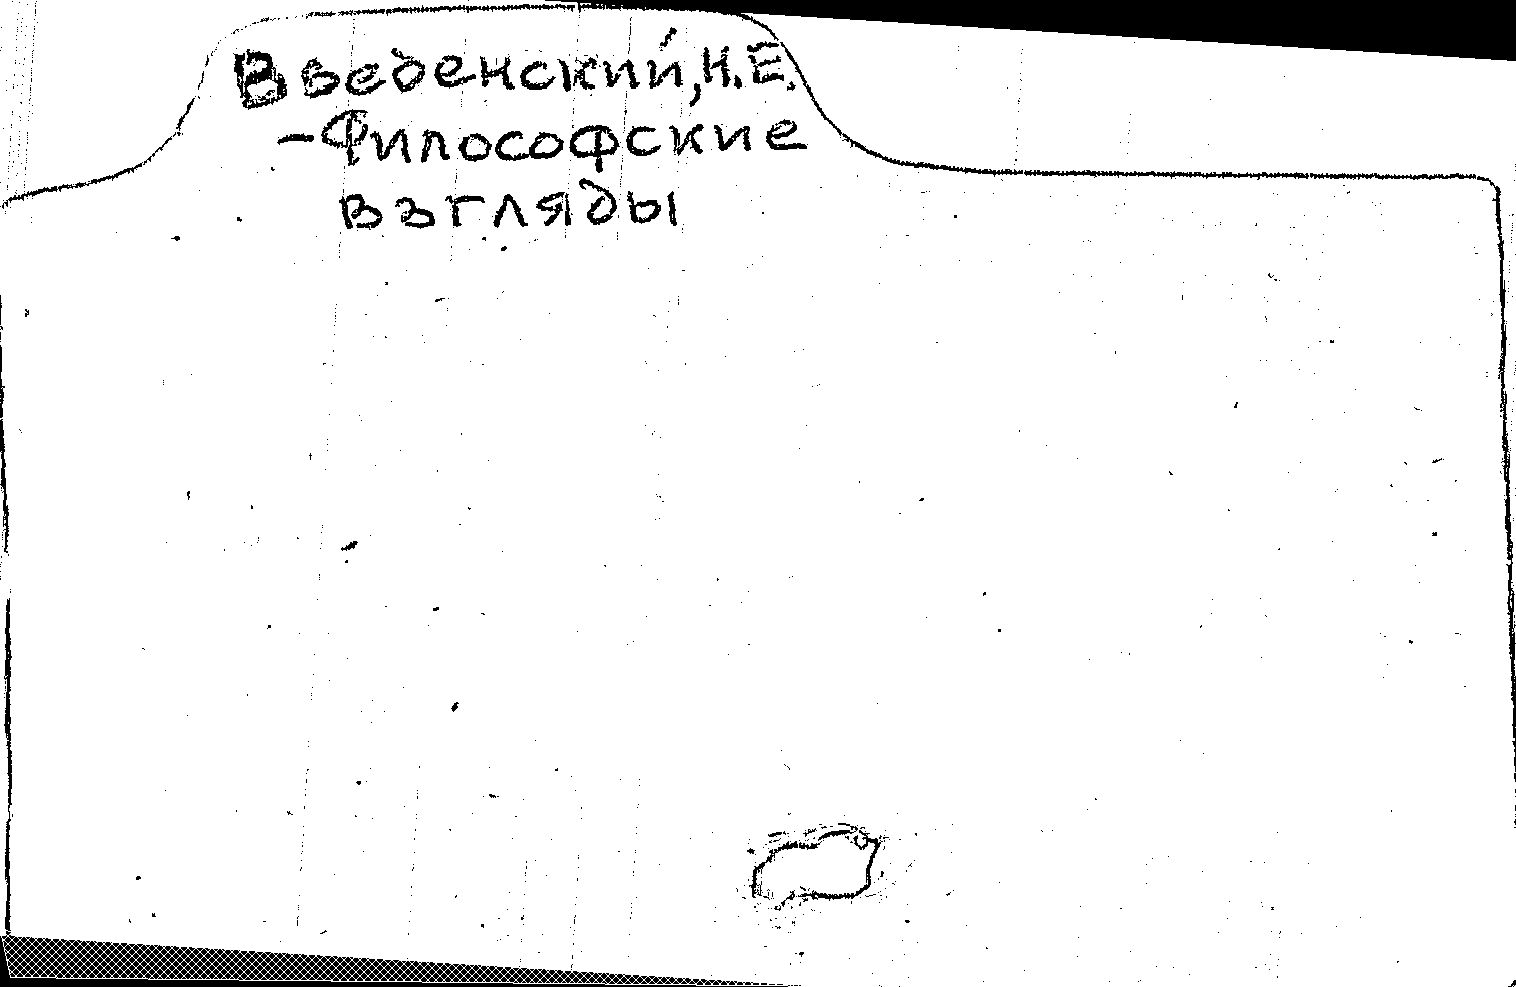 Введенский, Н.Е.
-Философские
взгляды